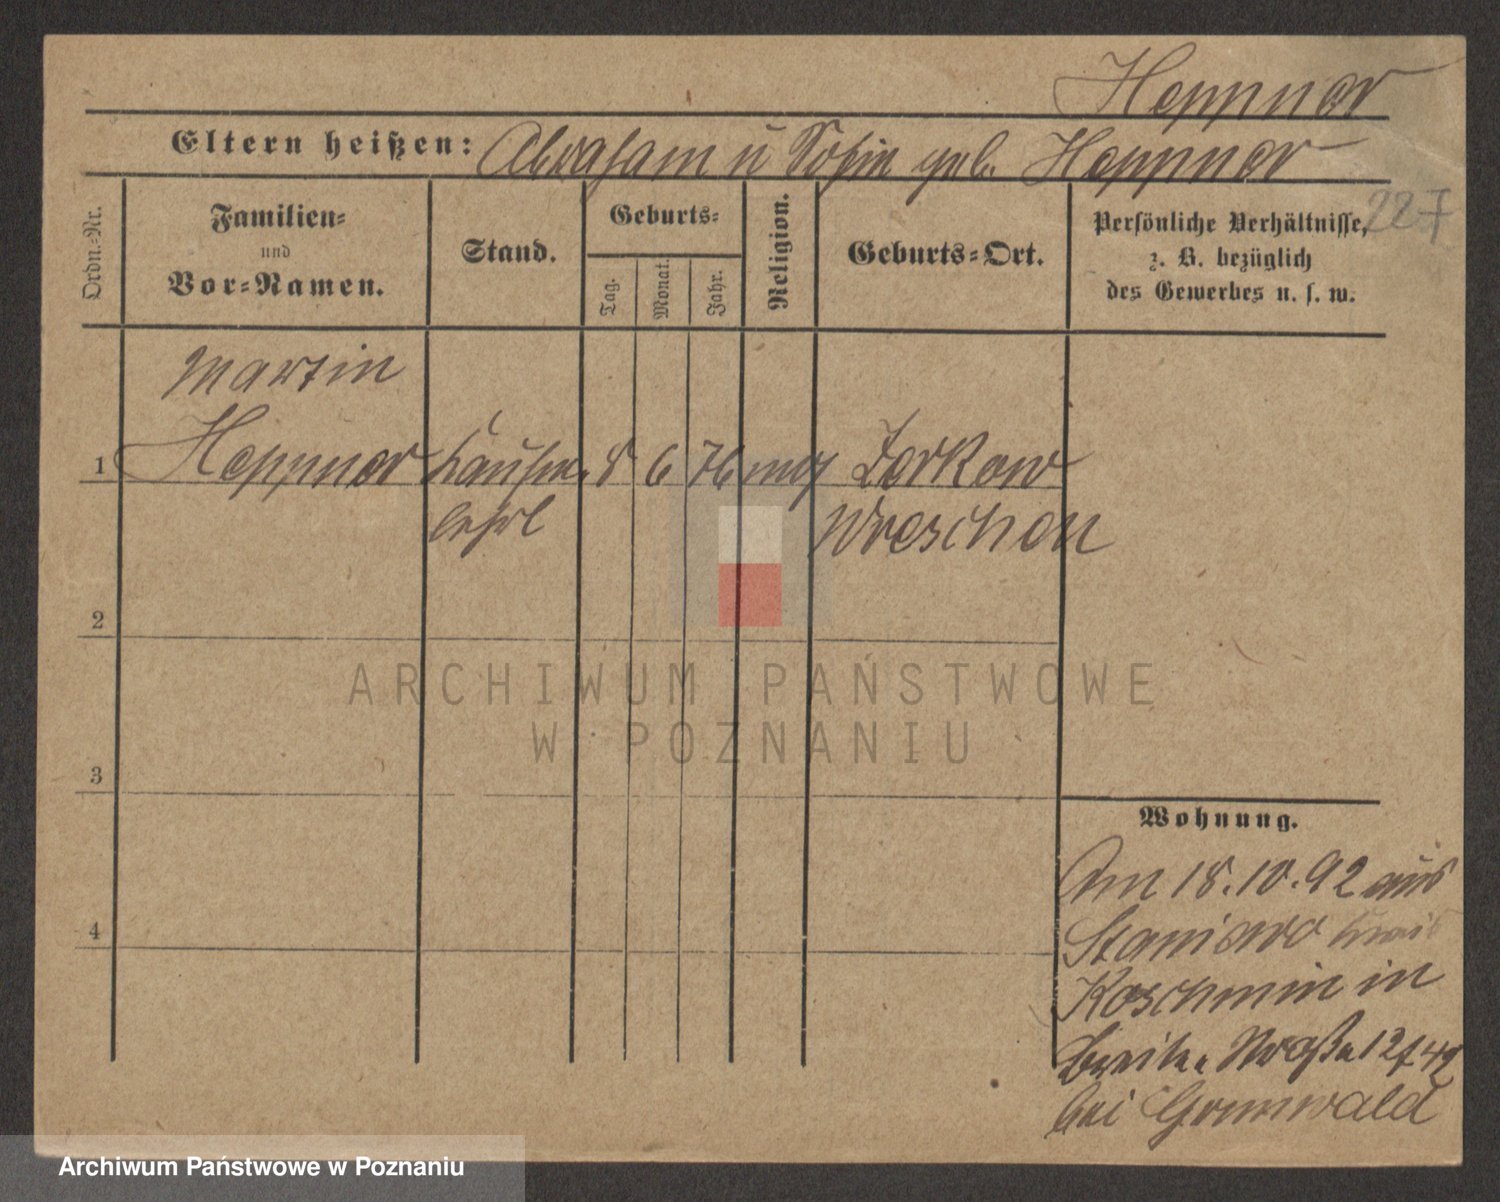 Heppner
Eltern heißen: Abraham u Sofie geb. Heppner
227
Ordn.-Nr.
Familien-
und
Vor-Namen.
Stand.
Geburts-
Tag.
Monat.
Jahr.
Religion.
Geburts-Ort.
Persönliche Verhältnisse,
z. B. bezüglich
des Gewerbes u. s. w.
Martin
1 Heppner Kaufm. 8 6 76 mos Zerkow
lehrl Wreschen
2
3
4
ARCHIWUM PAŃSTWOWE
W POZNANIU
Wohnung.
Am 18.10.92 aus
Staniewo Kreis
Koschmin in
Breite Straße 12
bei Grunwald
Archiwum Państwowe w Poznaniu